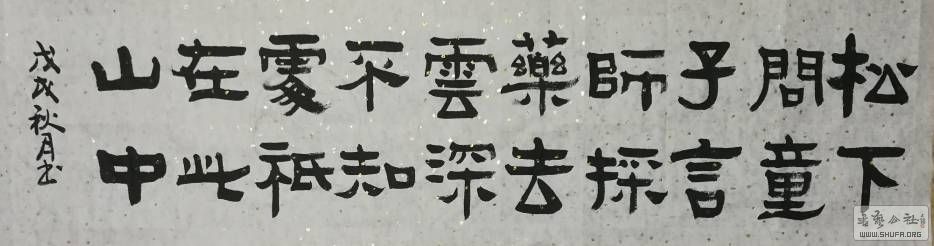 松下
問童
子言
師採
藥去
雲深
不知
處祇
在此
山中
戊戌秋月书
WWW.SHUFA.ORG